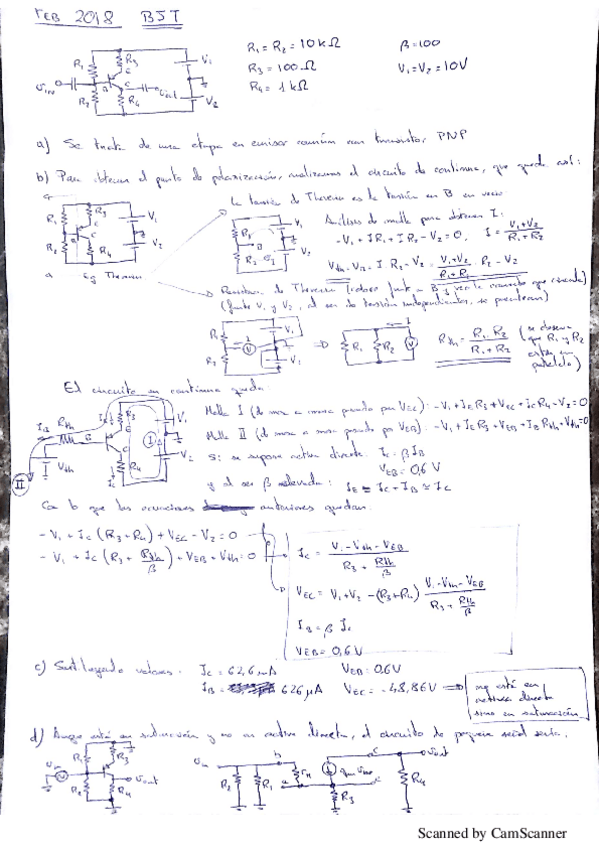 FEB 2018 BJT
R₁ = R₂ = 10 kΩ β = 100
R₃ = 100 Ω V₁ = V₂ = 10V
R₄ = 1 kΩ
a) Se trata de una etapa en emisor común con transistor PNP
b) Para obtener el punto de polarización, analizamos el circuito de continua, que queda así:
La tensión de Thevenin es la tensión en B en vacío
Análisis de malla para obtener I:
-V₁ + I R₁ + I R₂ - V₂ = 0, I = (V₁+V₂)/(R₁+R₂)
Eq Thevenin
(fuente V₁ y V₂, al ser de tensión independientes, se
Rth = (R₁·R₂)/(R₁+R₂)
(se observa
que R₁ y R₂
están en
paralelo)
El circuito en continua queda
Malla I (de masa a masa pasando por VEC): -V₁ + IE R₃ + VEC + IC R₄ - V₂ = 0
Malla II (de masa a masa pasando por VEB): -V₁ + IE R₃ + VEB + IB Rth + Vth = 0
Si se supone activa directa: IC = β IB
VEB = 0,6 V
y al ser β elevada: IE = IC + IB ≃ IC
Con lo que las ecuaciones anteriores quedan:
-V₁ + IC (R₃ + R₄) + VEC - V₂ = 0
-V₁ + IC (R₃ + Rth/β) + VEB + Vth = 0
IC = (V₁ - Vth - VEB)/(R₃ + Rth/β)
VEC = V₁ + V₂ - (R₃ + R₄) (V₁ - Vth - VEB)/(R₃ + Rth/β)
IB = β IC
VEB = 0,6 V
c) Sustituyendo valores: IC = 62,6 mA VEB = 0,6V
IB = 626 μA VEC = -48,86V
no está en
activa directa
sino en saturación
d) Aunque está en saturación y no en activa directa, el circuito de pequeña señal sería:
Scanned by CamScanner